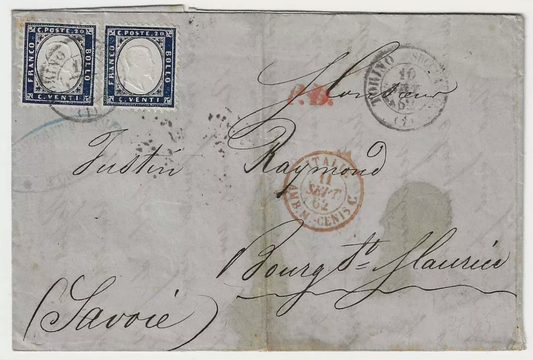 C. POSTE. 20
FRANCO
BOLLO
C. VENTI
C. POSTE. 20
FRANCO
BOLLO
C. VENTI
TORINO
10
SET
62
(1)
P.D.
Monsieur
Justin Raymond
ITALIE
11
SEPT
62
AMB. M.-CENIS C.
Bourg St. Maurice
(Savoie)